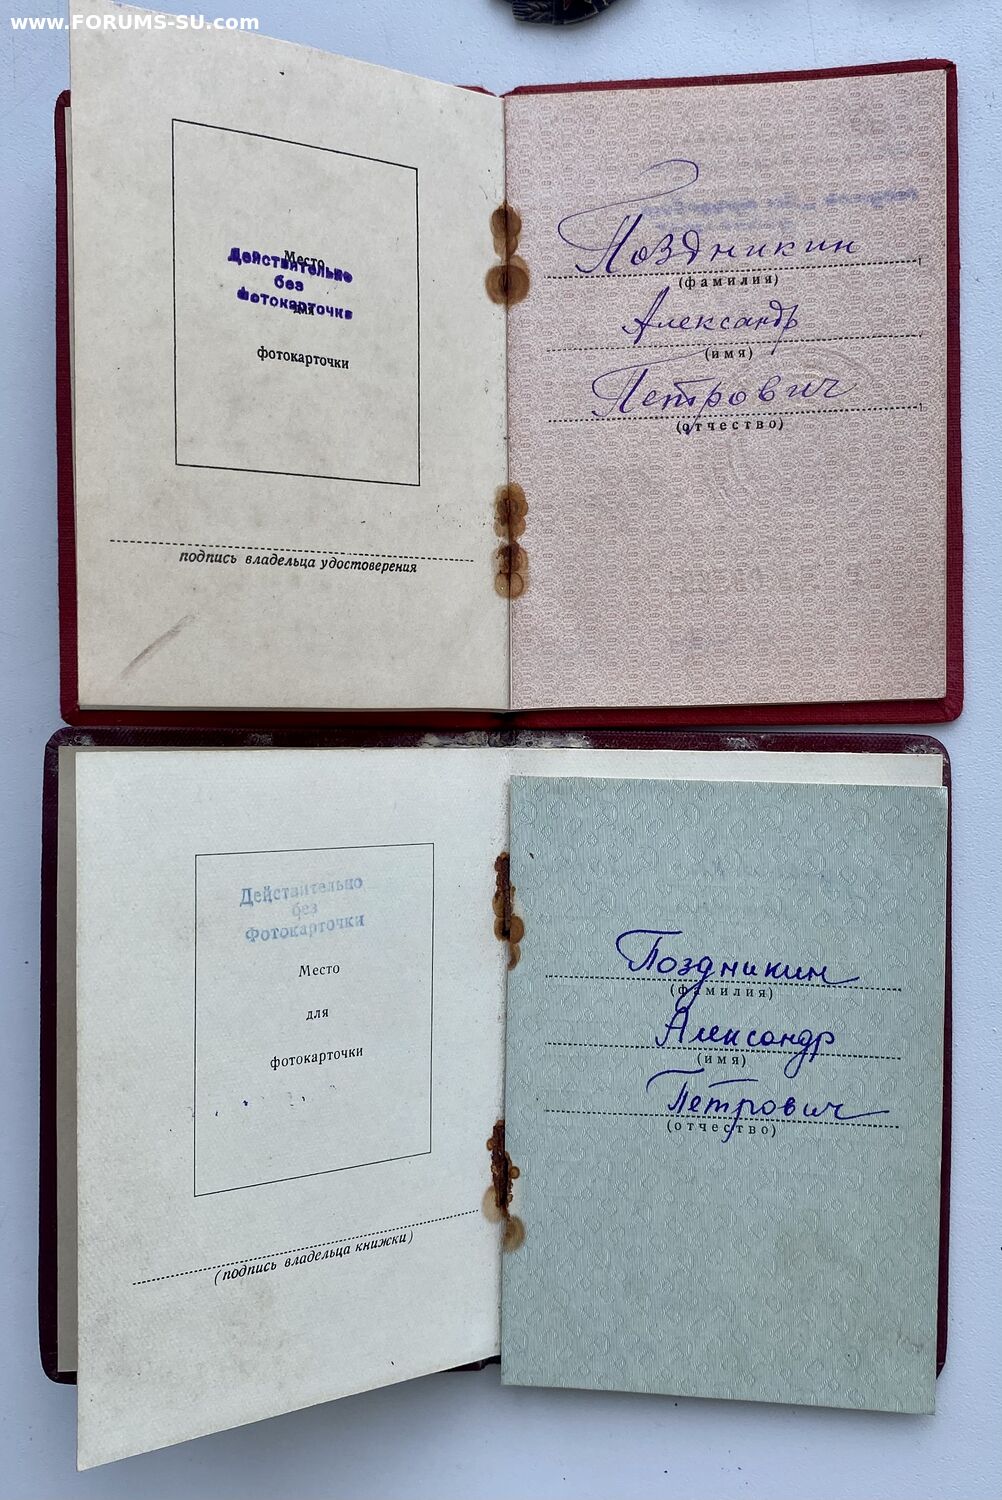 www.FORUMS-SU.com
Место
Действительно
без
Фотокарточки
для
фотокарточки
подпись владельца удостоверения
Поздникин
(фамилия)
Александр
(имя)
Петрович
(отчество)
Действительно
без
Фотокарточки
Место
для
фотокарточки
(подпись владельца книжки)
Поздникин
(фамилия)
Александр
(имя)
Петрович
(отчество)